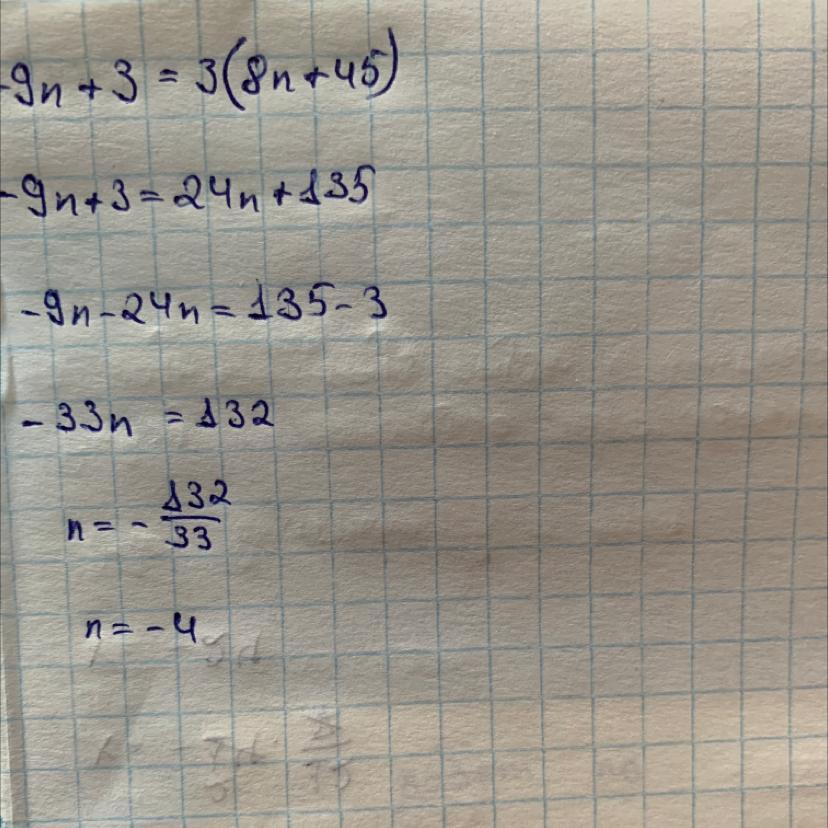 -9n+3=3(8n+45)
-9n+3=24n+135
-9n-24n=135-3
-33n=132
n=-132/33
n=-4